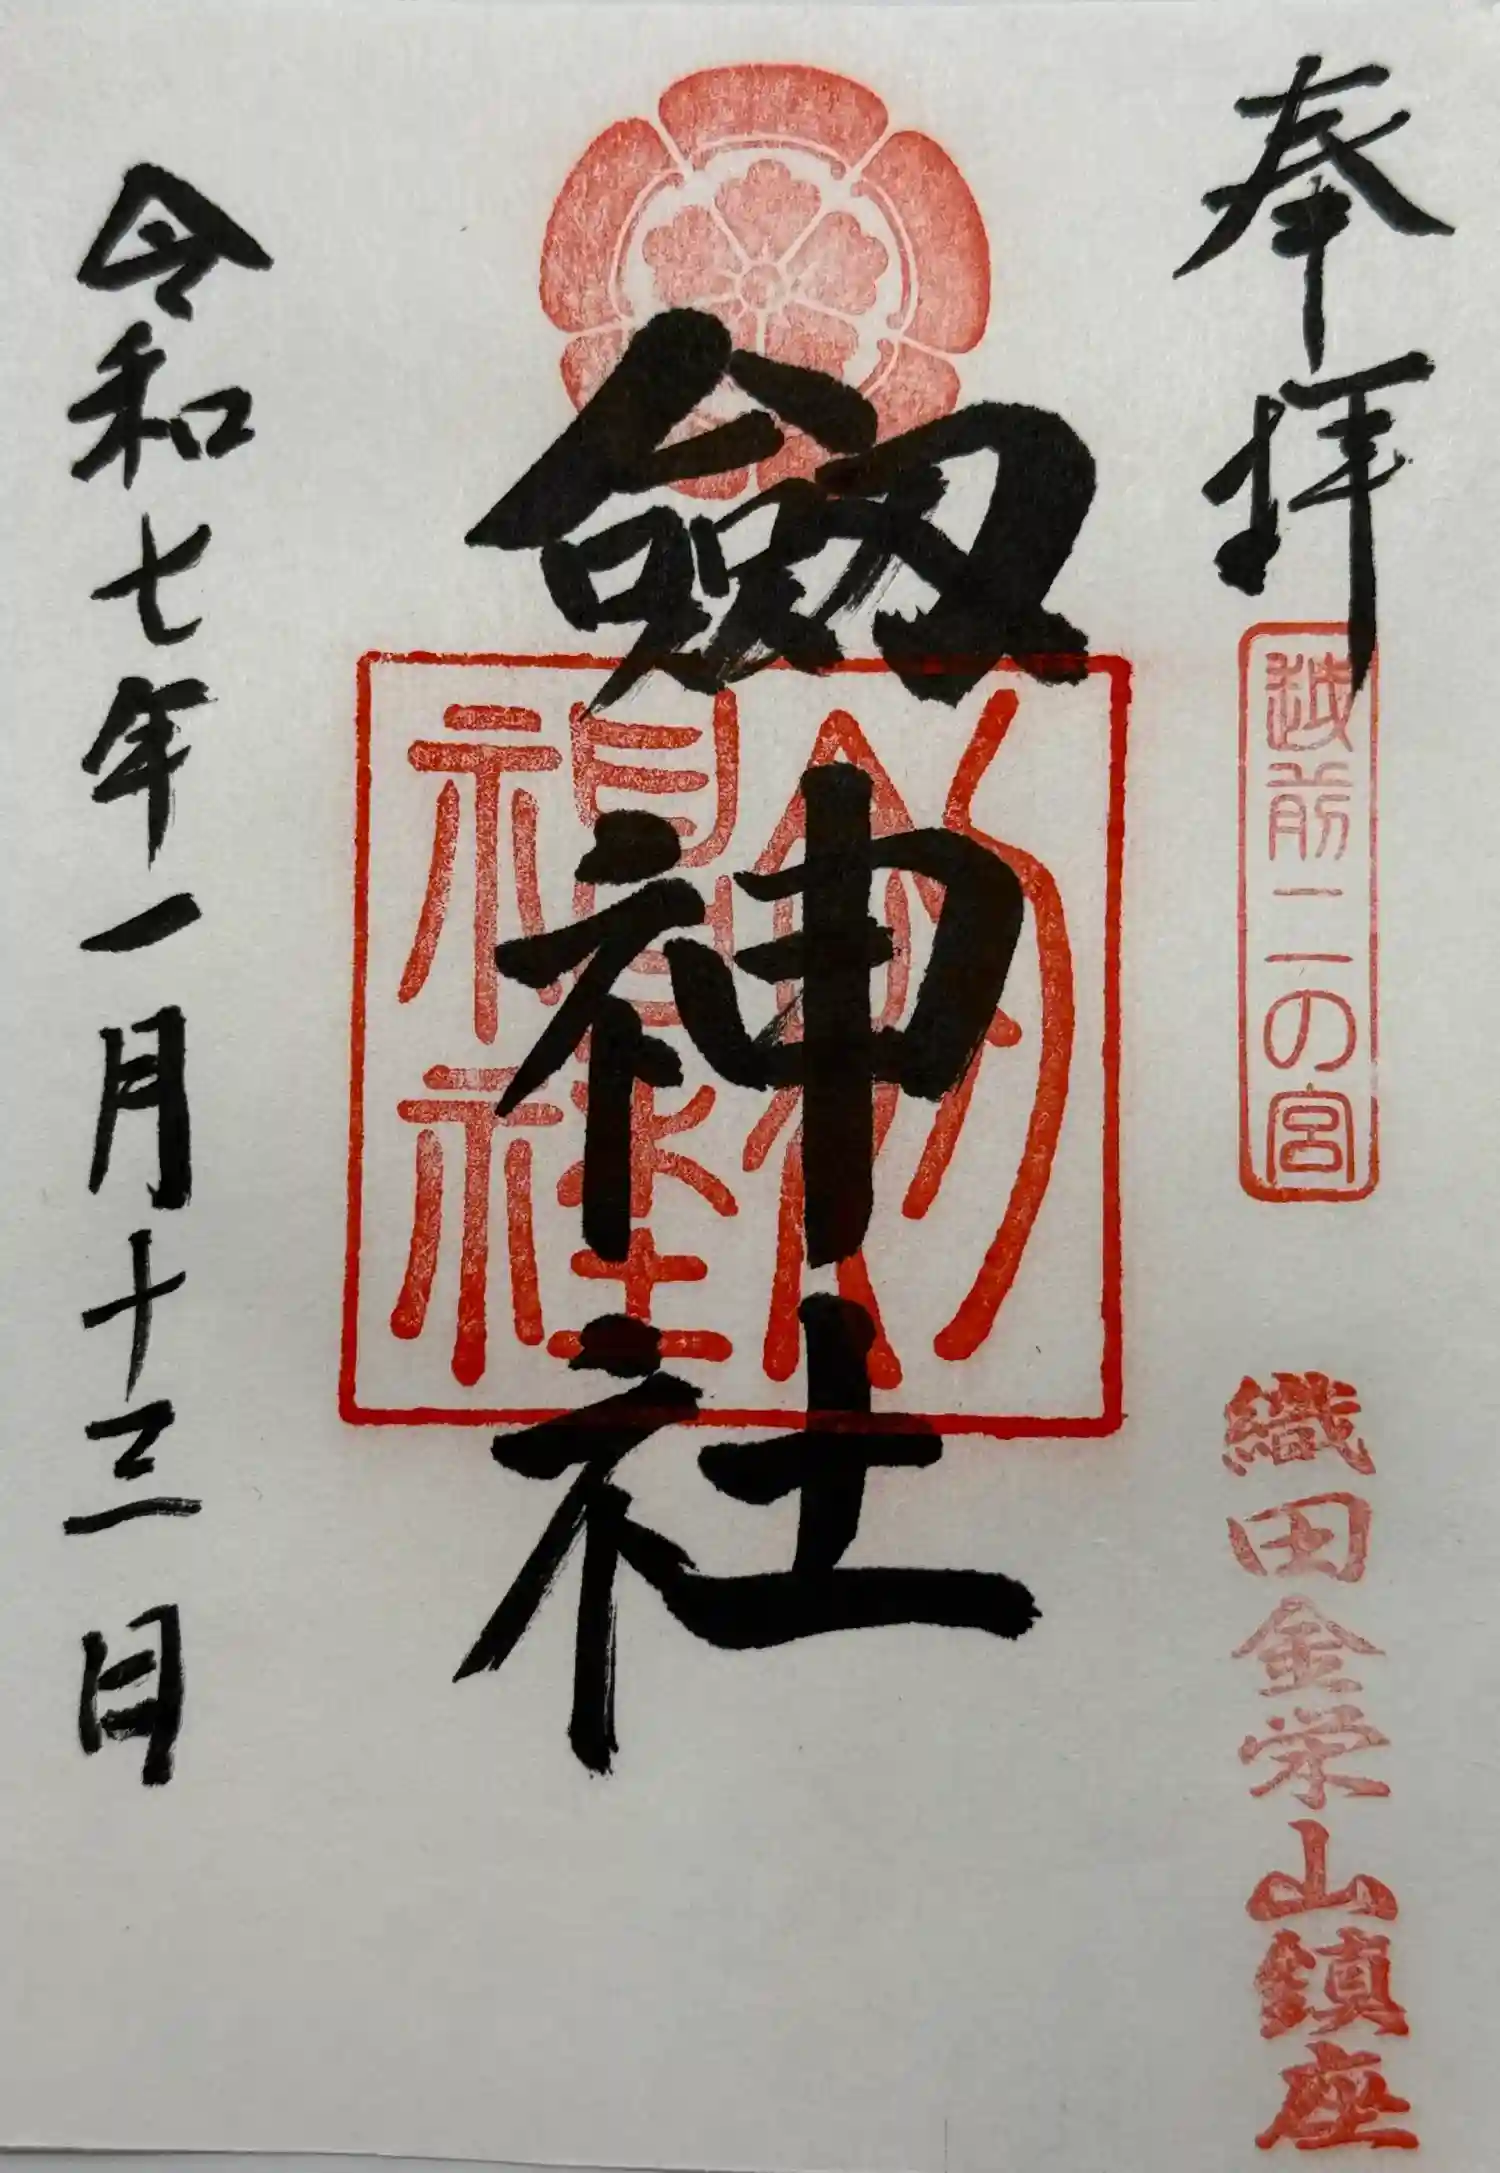 奉拝
越前二の宮
織田金栄山鎮座
劔神社
劔神社
令和七年一月十三日